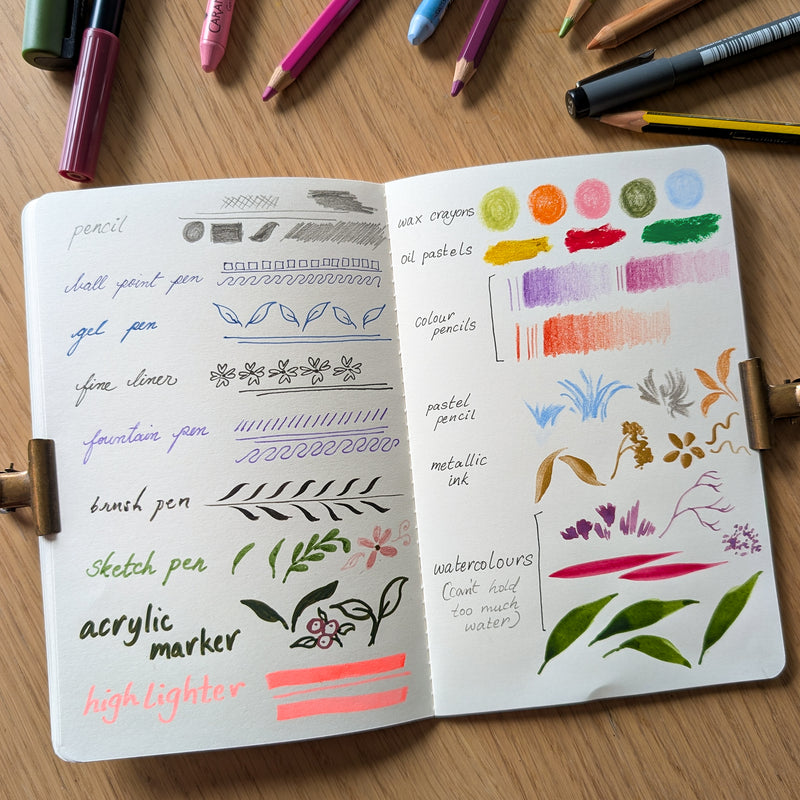 CARAN
pencil
ball point pen
gel pen
fine liner
fountain pen
brush pen
sketch pen
acrylic
marker
highlighter
wax crayons
oil pastels
colour
pencils
pastel
pencil
metallic
ink
watercolours
(can't hold
too much
water)